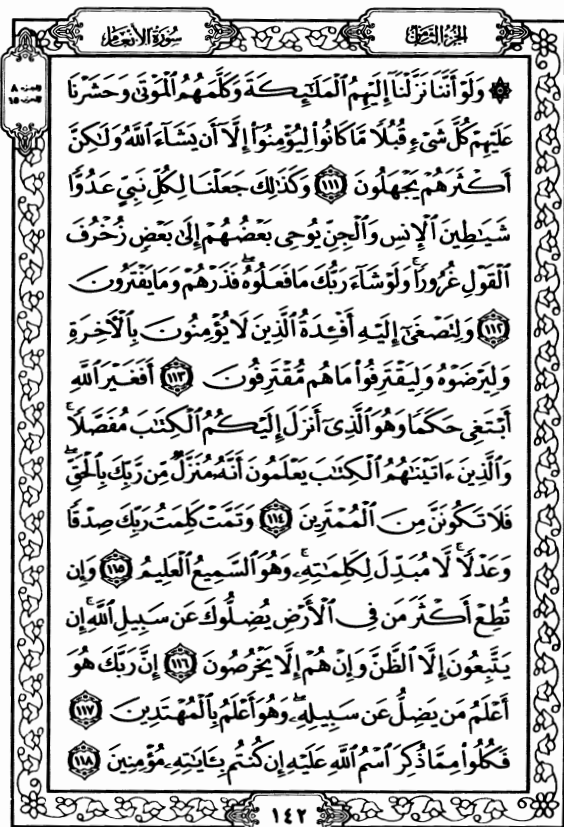 سُورَةُ الأَنْعَامِ
الجُزْءُ الثَّامِنُ
۞ وَلَوْ أَنَّنَا نَزَّلْنَآ إِلَيْهِمُ ٱلْمَلَٰٓئِكَةَ وَكَلَّمَهُمُ ٱلْمَوْتَىٰ وَحَشَرْنَا
عَلَيْهِمْ كُلَّ شَىْءٍ قُبُلًا مَّا كَانُوا۟ لِيُؤْمِنُوٓا۟ إِلَّآ أَن يَشَآءَ ٱللَّهُ وَلَٰكِنَّ
أَكْثَرَهُمْ يَجْهَلُونَ ١١١ وَكَذَٰلِكَ جَعَلْنَا لِكُلِّ نَبِىٍّ عَدُوًّا
شَيَٰطِينَ ٱلْإِنسِ وَٱلْجِنِّ يُوحِى بَعْضُهُمْ إِلَىٰ بَعْضٍ زُخْرُفَ
ٱلْقَوْلِ غُرُورًا ۚ وَلَوْ شَآءَ رَبُّكَ مَا فَعَلُوهُ ۖ فَذَرْهُمْ وَمَا يَفْتَرُونَ
١١٢ وَلِتَصْغَىٰٓ إِلَيْهِ أَفْـِٔدَةُ ٱلَّذِينَ لَا يُؤْمِنُونَ بِٱلْـَٔاخِرَةِ
وَلِيَرْضَوْهُ وَلِيَقْتَرِفُوا۟ مَا هُم مُّقْتَرِفُونَ ١١٣ أَفَغَيْرَ ٱللَّهِ
أَبْتَغِى حَكَمًا وَهُوَ ٱلَّذِىٓ أَنزَلَ إِلَيْكُمُ ٱلْكِتَٰبَ مُفَصَّلًا ۚ
وَٱلَّذِينَ ءَاتَيْنَٰهُمُ ٱلْكِتَٰبَ يَعْلَمُونَ أَنَّهُۥ مُنَزَّلٌ مِّن رَّبِّكَ بِٱلْحَقِّ ۖ
فَلَا تَكُونَنَّ مِنَ ٱلْمُمْتَرِينَ ١١٤ وَتَمَّتْ كَلِمَتُ رَبِّكَ صِدْقًا
وَعَدْلًا ۚ لَّا مُبَدِّلَ لِكَلِمَٰتِهِۦ ۚ وَهُوَ ٱلسَّمِيعُ ٱلْعَلِيمُ ١١٥ وَإِن
تُطِعْ أَكْثَرَ مَن فِى ٱلْأَرْضِ يُضِلُّوكَ عَن سَبِيلِ ٱللَّهِ ۚ إِن
يَتَّبِعُونَ إِلَّا ٱلظَّنَّ وَإِنْ هُمْ إِلَّا يَخْرُصُونَ ١١٦ إِنَّ رَبَّكَ هُوَ
أَعْلَمُ مَن يَضِلُّ عَن سَبِيلِهِۦ ۖ وَهُوَ أَعْلَمُ بِٱلْمُهْتَدِينَ ١١٧
فَكُلُوا۟ مِمَّا ذُكِرَ ٱسْمُ ٱللَّهِ عَلَيْهِ إِن كُنتُم بِـَٔايَٰتِهِۦ مُؤْمِنِينَ ١١٨
١٤٢